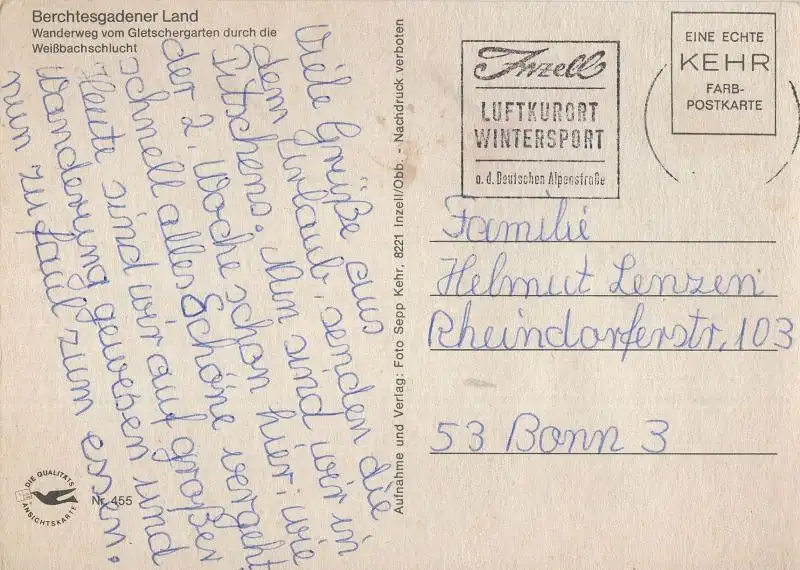 Berchtesgadener Land
Wanderweg vom Gletschergarten durch die
Weißbachschlucht
Viele Grüße aus
dem Urlaub, senden die
Pitschens. Nun sind wir in
der 2. Woche schon hier, wie
schnell alles Schöne vergeht.
Heute sind wir auf großer
Wanderung gewesen und
nun zu faul zum essen.
DIE QUALITÄTS
ANSICHTSKARTE
Nr. 455
Aufnahme und Verlag: Foto Sepp Kehr, 8221 Inzell/Obb. - Nachdruck verboten
Inzell
LUFTKURORT
WINTERSPORT
a.d. Deutschen Alpenstraße
EINE ECHTE
KEHR
FARB-
POSTKARTE
Familie
Helmut Lenzen
Rheindorferstr, 103
53 Bonn 3